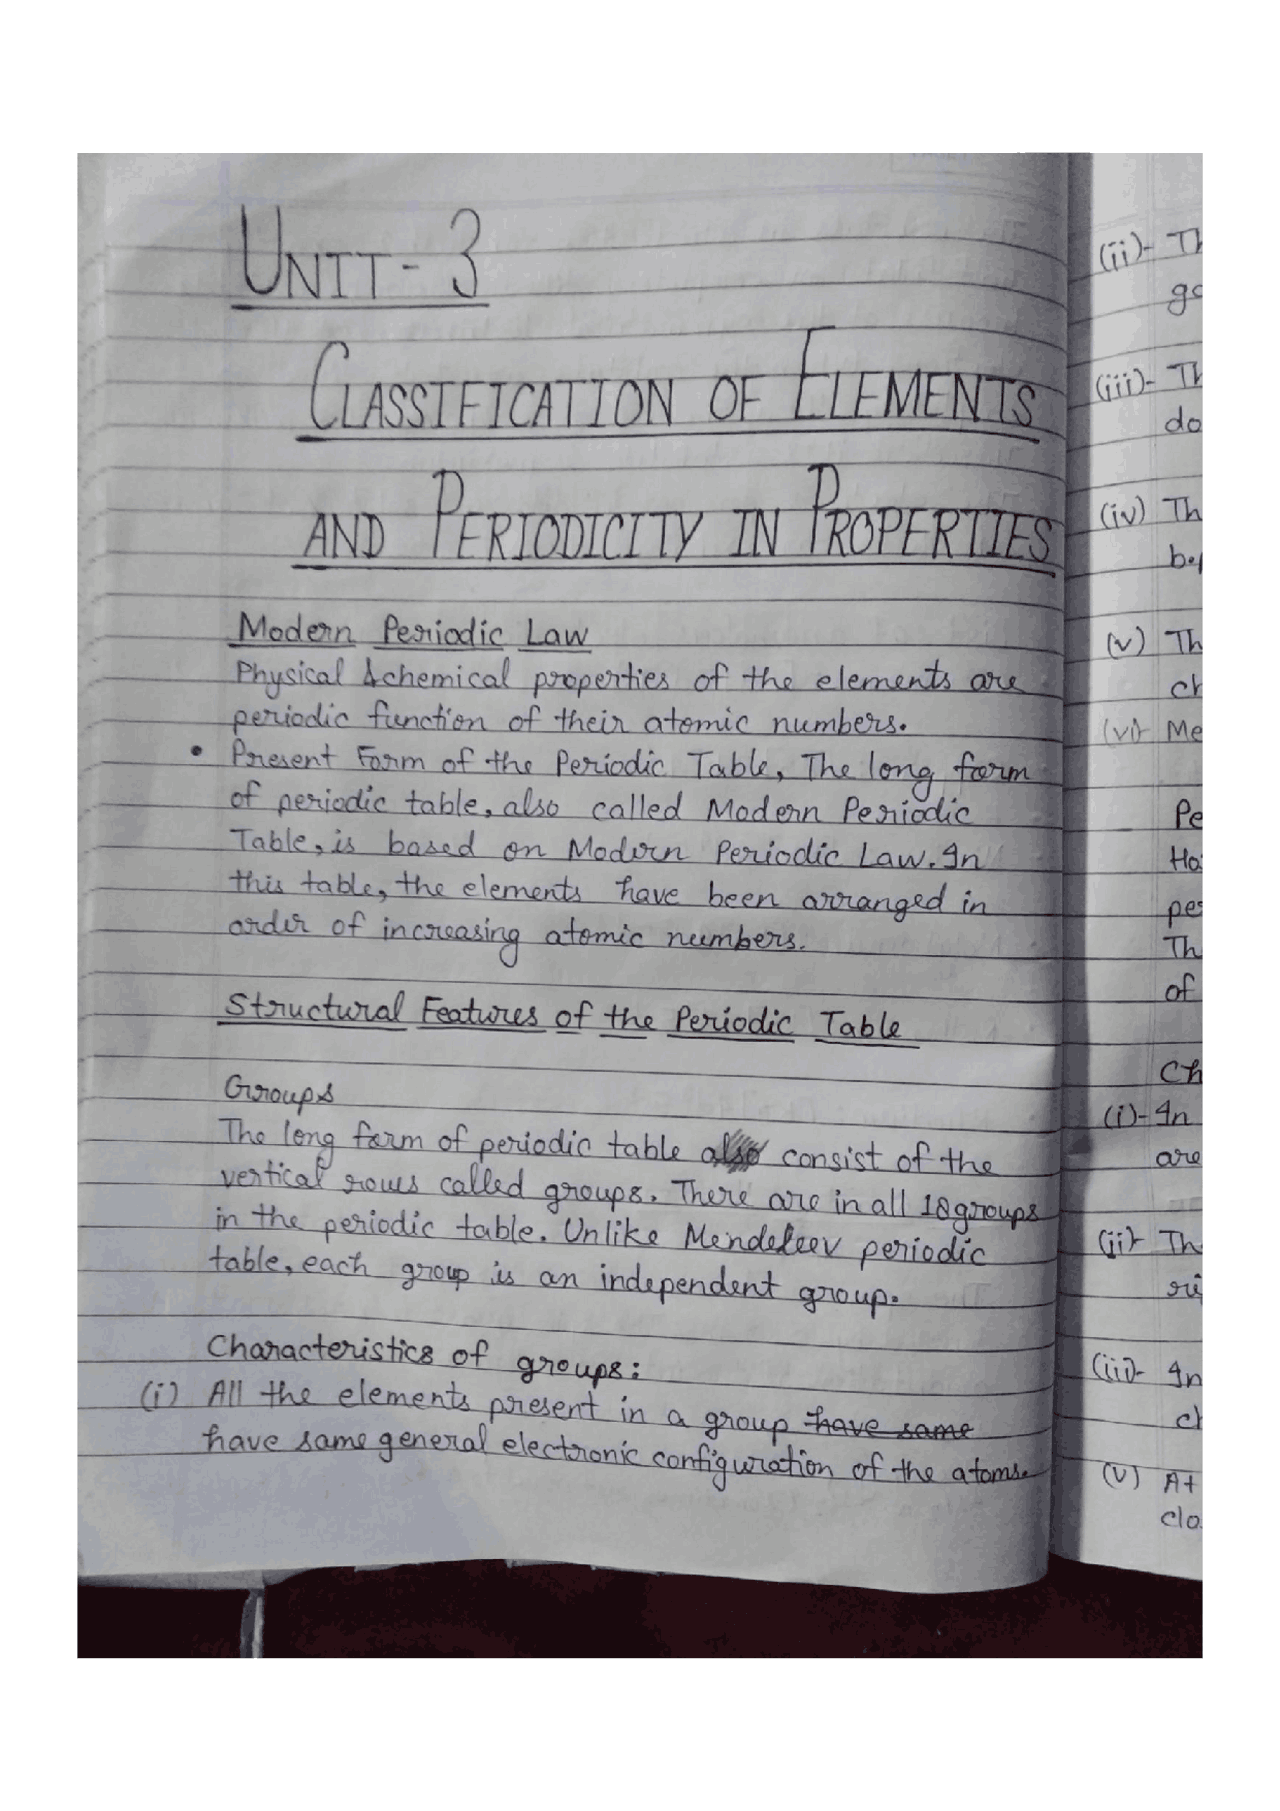 UNIT-3
CLASSIFICATION OF ELEMENTS
AND PERIODICITY IN PROPERTIES
Modern Periodic Law
Physical & chemical properties of the elements are
periodic function of their atomic numbers.
• Present Form of the Periodic Table, The long form
of periodic table, also called Modern Periodic
Table, is based on Modern Periodic Law. In
this table, the elements have been arranged in
order of increasing atomic numbers.
Structural Features of the Periodic Table
Groups
The long form of periodic table also consist of the
vertical rows called groups. There are in all 18 groups
in the periodic table. Unlike Mendeleev periodic
table, each group is an independent group.
Characteristics of groups:
(i) All the elements present in a group have same
have same general electronic configuration of the atoms.
(ii)- Th
go
(iii)- Th
do
(iv) Th
(v) Th
ch
(vi)- Me
Pe
Ha
pe
Th
of
Ch
(i)- In
are
(ii)- Th
ri
(iii)- In
ch
(v) At
clo